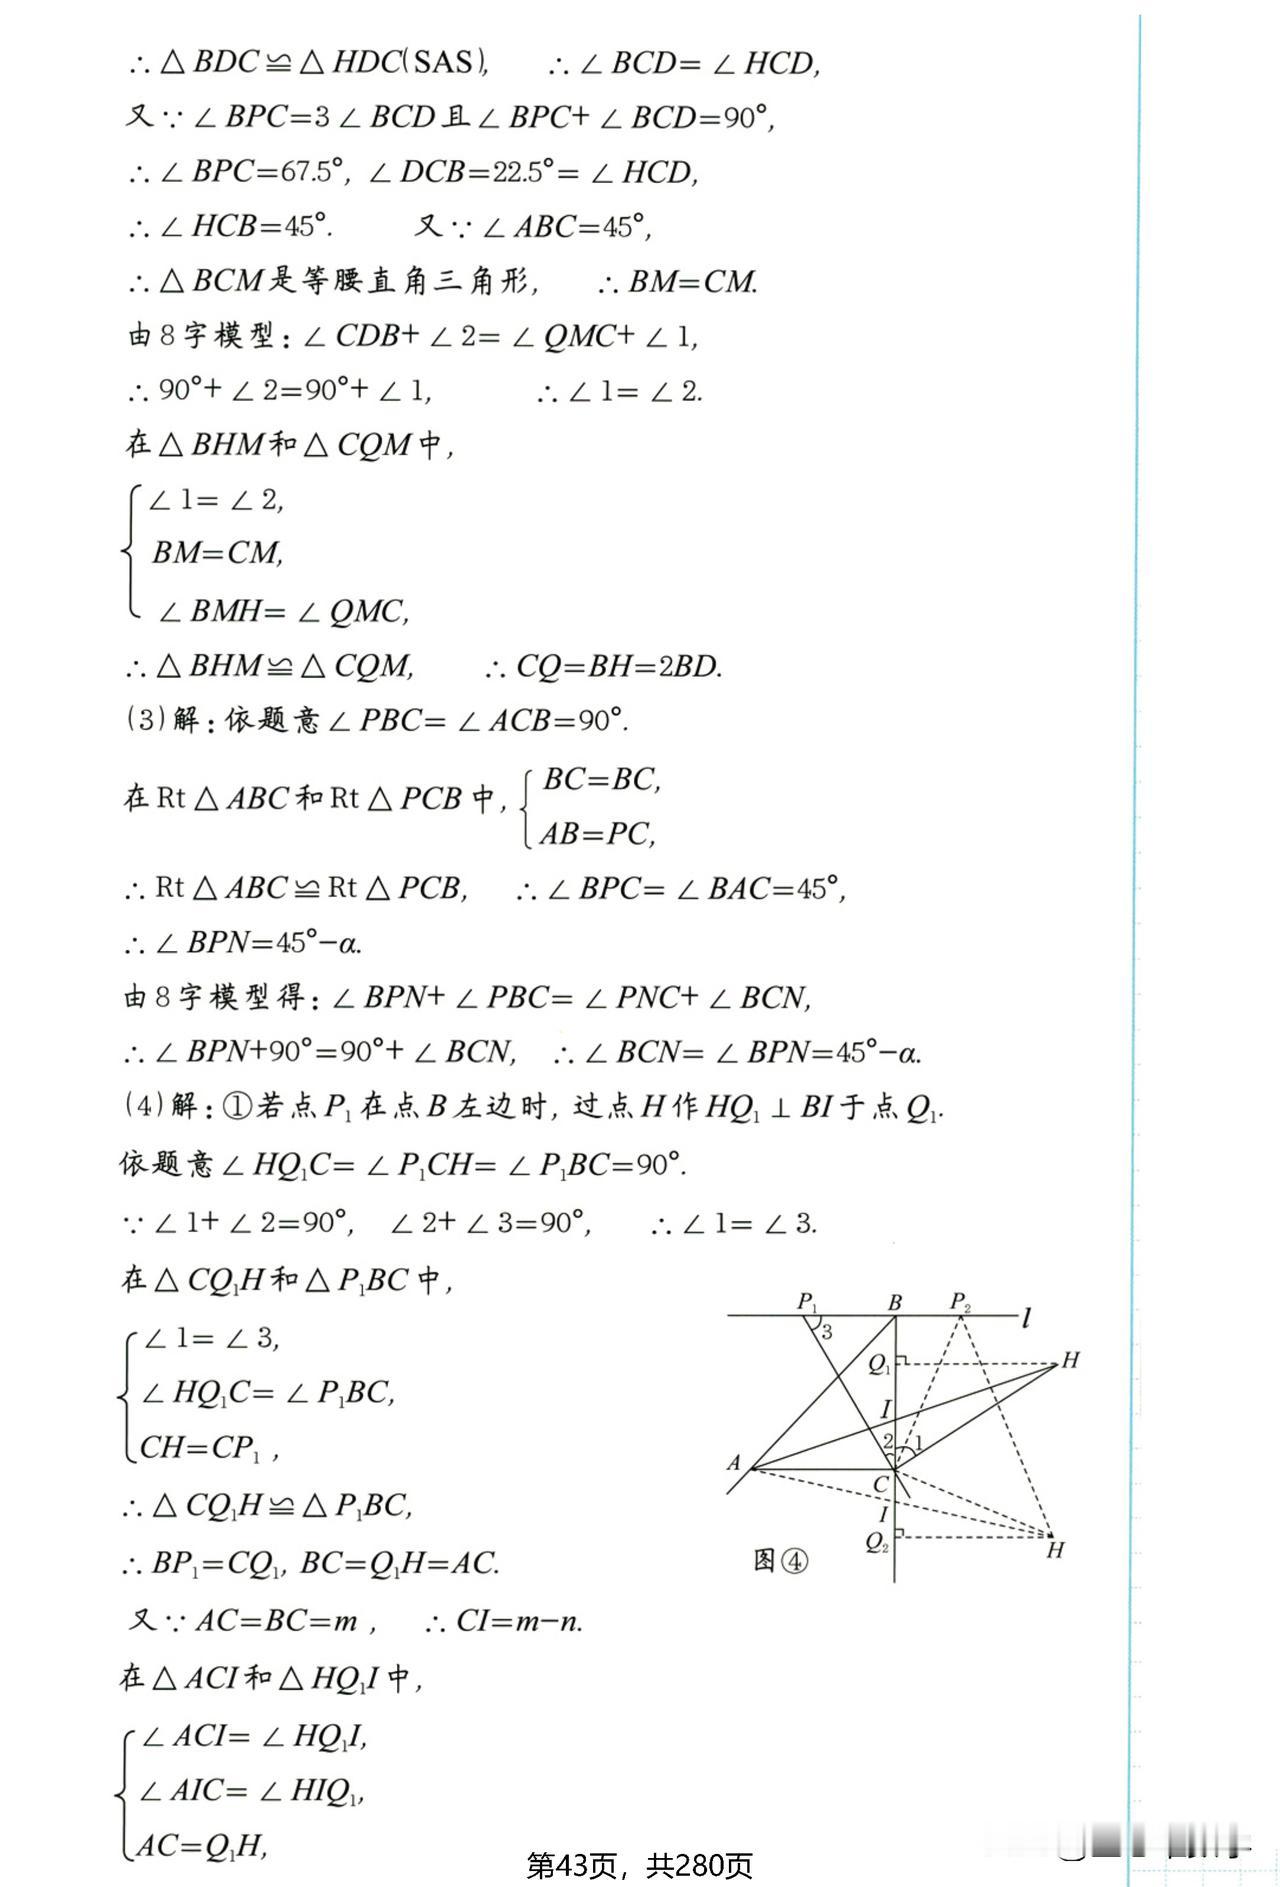 ∴△BDC≌△HDC(SAS), ∴∠BCD=∠HCD,
又∵∠BPC=3∠BCD且∠BPC+∠BCD=90°,
∴∠BPC=67.5°, ∠DCB=22.5°=∠HCD,
∴∠HCB=45°. 又∵∠ABC=45°,
∴△BCM是等腰直角三角形, ∴BM=CM.
由8字模型:∠CDB+∠2=∠QMC+∠1,
∴90°+∠2=90°+∠1, ∴∠1=∠2.
在△BHM和△CQM中,
∠1=∠2,
BM=CM,
∠BMH=∠QMC,
∴△BHM≌△CQM, ∴CQ=BH=2BD.
(3)解:依题意∠PBC=∠ACB=90°.
在Rt△ABC和Rt△PCB中, { BC=BC,
AB=PC,
∴Rt△ABC≌Rt△PCB, ∴∠BPC=∠BAC=45°,
∴∠BPN=45°-α.
由8字模型得:∠BPN+∠PBC=∠PNC+∠BCN,
∴∠BPN+90°=90°+∠BCN, ∴∠BCN=∠BPN=45°-α.
(4)解:①若点P₁在点B左边时,过点H作HQ₁⊥BI于点Q₁.
依题意∠HQ₁C=∠P₁CH=∠P₁BC=90°.
∵∠1+∠2=90°, ∠2+∠3=90°, ∴∠1=∠3.
在△CQ₁H和△P₁BC中,
∠1=∠3,
∠HQ₁C=∠P₁BC,
CH=CP₁,
∴△CQ₁H≌△P₁BC,
∴BP₁=CQ₁, BC=Q₁H=AC.
又∵AC=BC=m, ∴CI=m-n.
在△ACI和△HQ₁I中,
∠ACI=∠HQ₁I,
∠AIC=∠HIQ₁,
AC=Q₁H,
P₁ B P₂ l
3
Q₁ H
I
2 1
A C
I
Q₂ H
图④
第43页，共280页